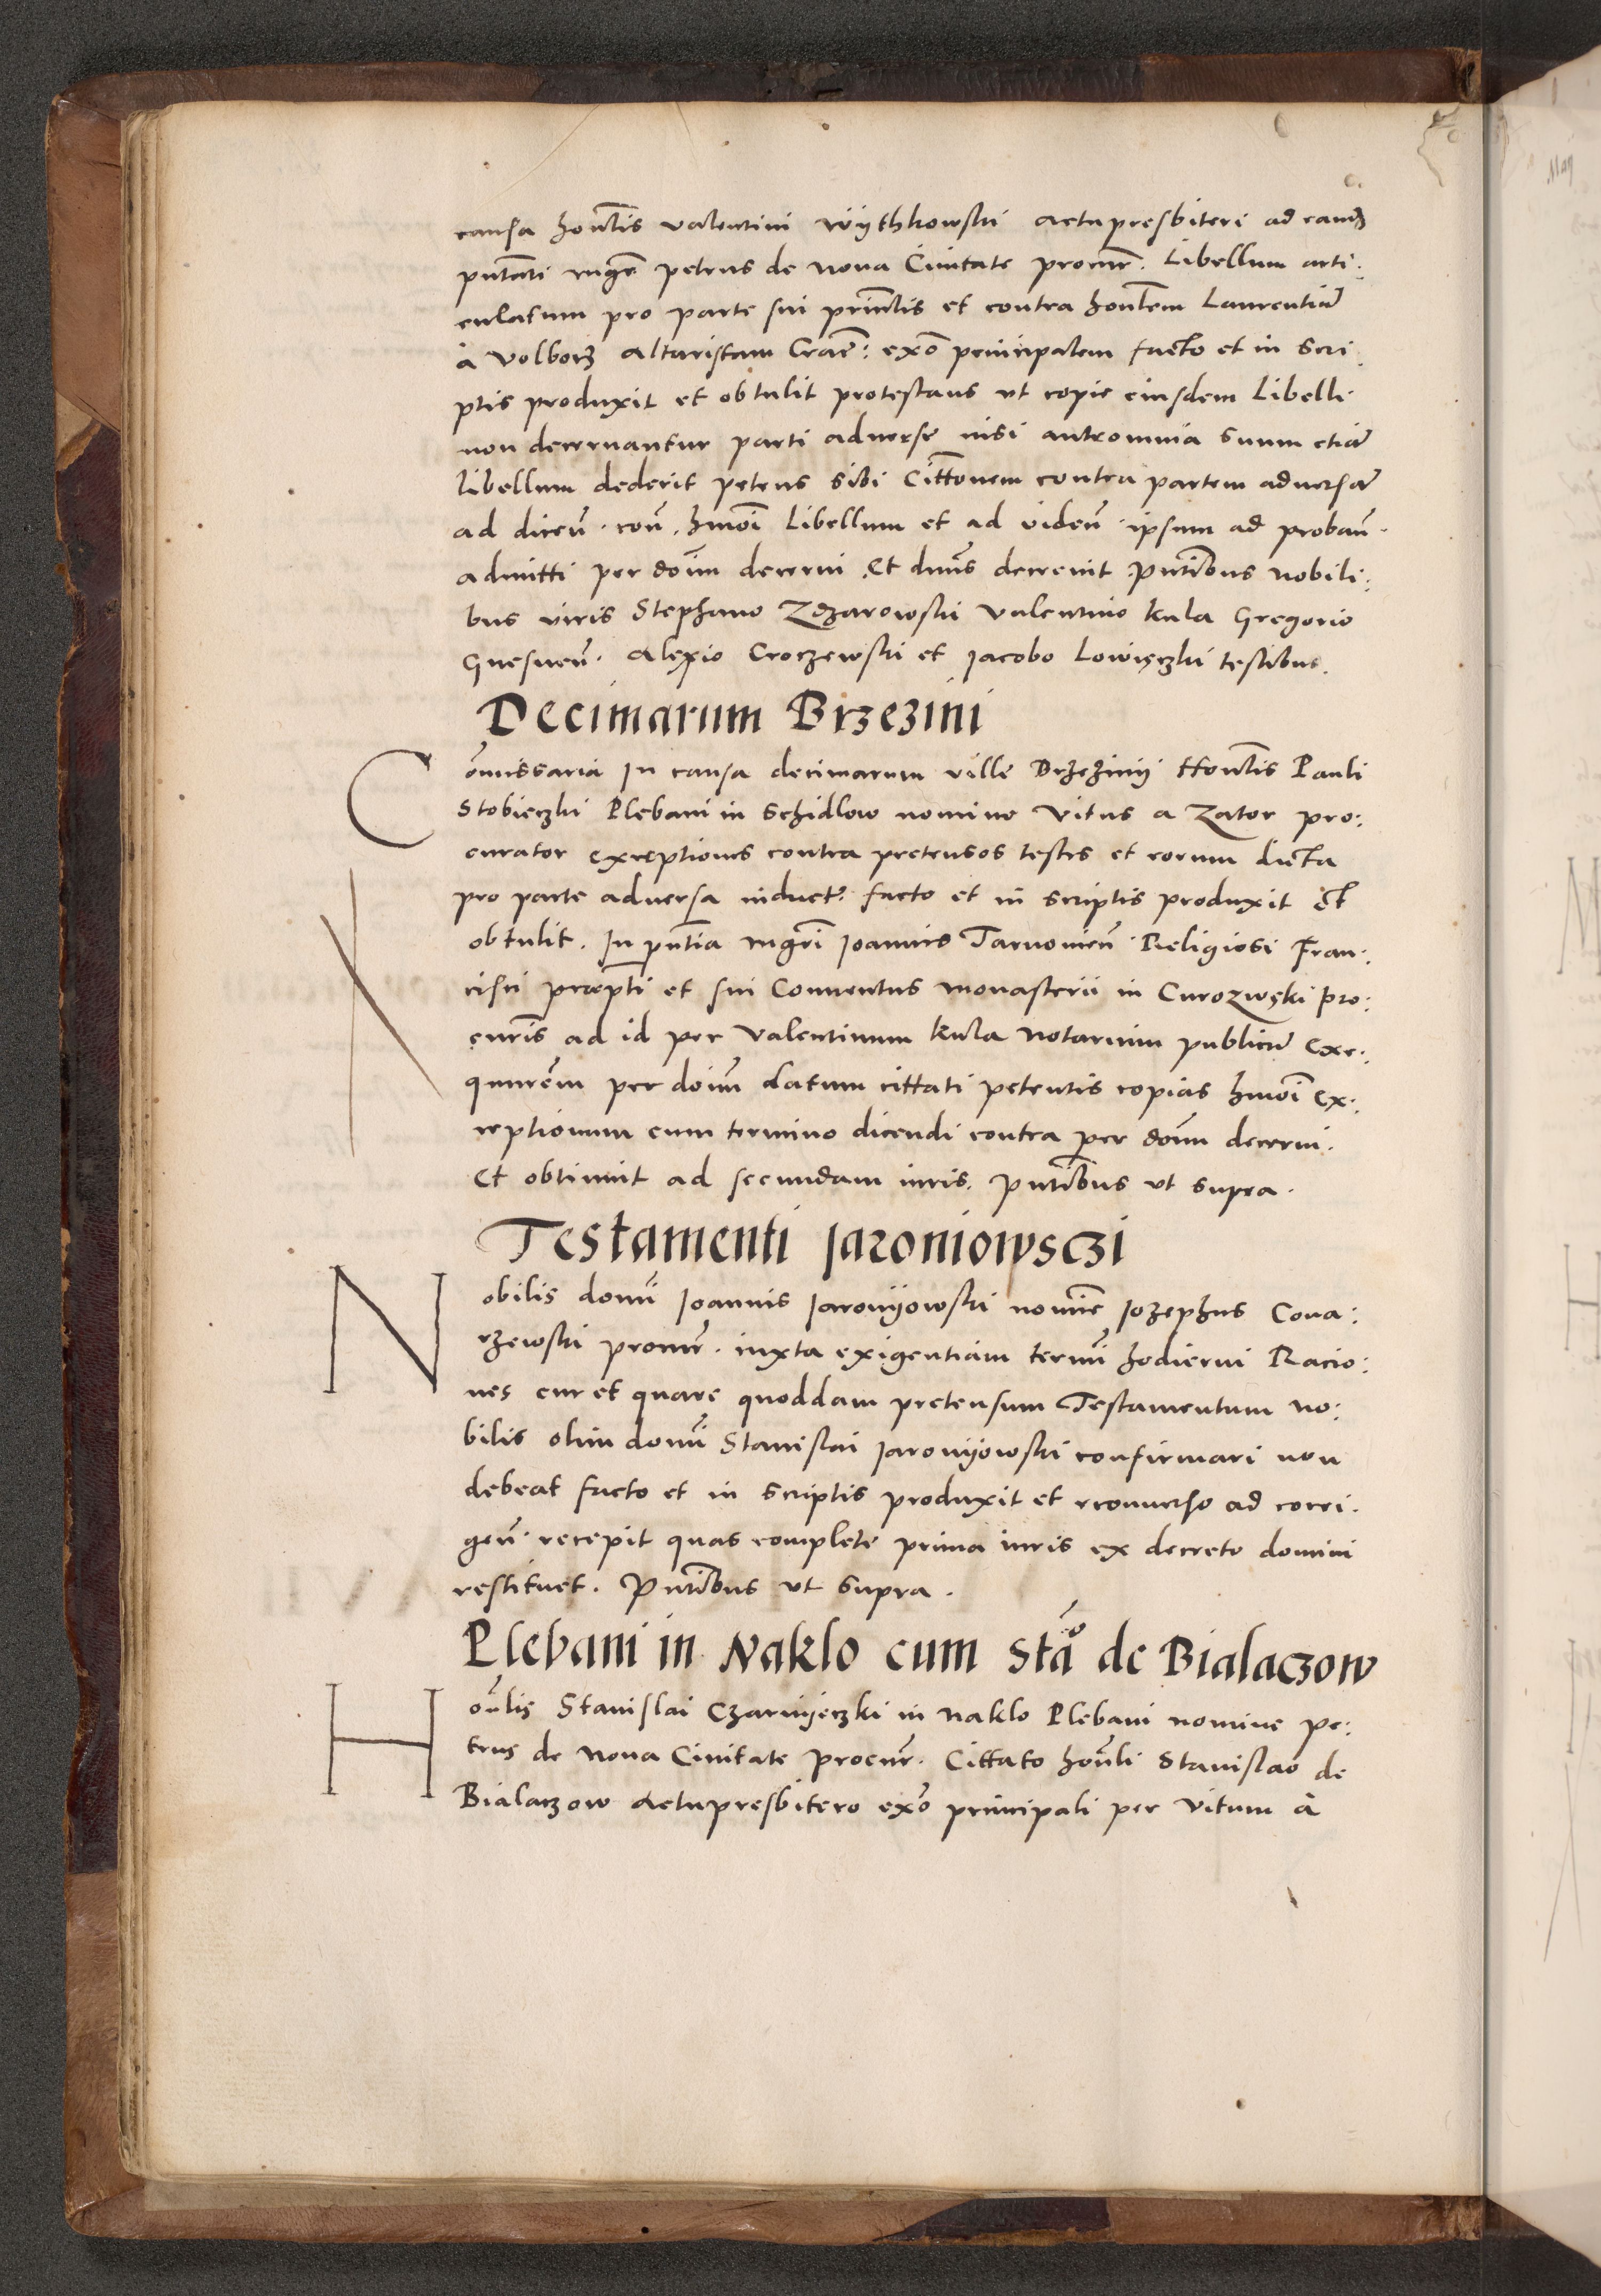 causa hon̄lis valentini Wÿthkowski Actupresbiteri ad eamdȝ
pn̄tati mgr̄e petrus de Nova Civitate procur̄. Libellum arti:
culatum pro parte sui prin̄ctlis et contra honlem̄ Laurentiū
à Volborȝ Altaristam Crac̄: exō principalem facto et in scri
ptis produxit et obtulit protestans ut copie eiusdem Libelli
non decernantur parti adverse nisi anteomnia suum etiā
libellum dederit petens sibi Citt̄onem contra partem adversā
ad dicen̄. con̄. hmoī Libellum et ad viden̄. ipsum ad proban̄.
admitti per doīm decerni. Et dnūs decrevit Pn̄tibus nobili:
bus viris Stephano Zdzarowski Valentino Kula Gregorio
Gnesnen̄. Alexio Croczewski et Jacobo Lowięczki testibus.
Decimarum Brzezini
Cōmissaria In causa decimarum ville Brzezinÿ Hon̄tlis Pauli
Stobieczki Plebani in Schidlow nomine Vitus a Zator pro:
curator exceptiones contra pretensos testes et eorum dicta
pro parte adversa induct̄: facto et in scriptis produxit Et
obtulit. In pn̄tia mgrī Joannis Tarnovien̄. Religiosi Fran:
cisci præpti̅ et sui Conventus monasterii in Curozwęki pro:
curis̄ ad id per Valentinum Kula Notarium publicū Exe:
quuremū per doīm datum cittati petentis copias hmoī Ex:
ceptionum cum termino dicendi contra per doīm decerni.
Et obtinuit ad secundam iuris. Pn̄tibus ut supra.
Testamenti Jaroniowsczi
Nobilis domī Joannis Jaronÿowski nomīe Jozephus Cona:
rzewski procur̄. iuxta exigentiam termī hodierni Racio:
nes cur et quare quoddam pretensum Testamentum no:
bilis olim domī Stanislai Jaronÿowski confirmari non
debeat facto et in scriptis produxit et econverso ad corri.
gen̄. recepit quas complete prima iuris ex decreto domini
restituet. Pn̄tibus ut supra.
Plebani in Naklo cum Stā° de Bialaczow
Hon̄lis Stanislai Czarnÿeczki in Naklo Plebani nomine pe:
trus de Nova Civitate procur̄. Cittato hon̄li Stanislao de
Bialaczow Actupresbitero exō principali per Vitum à